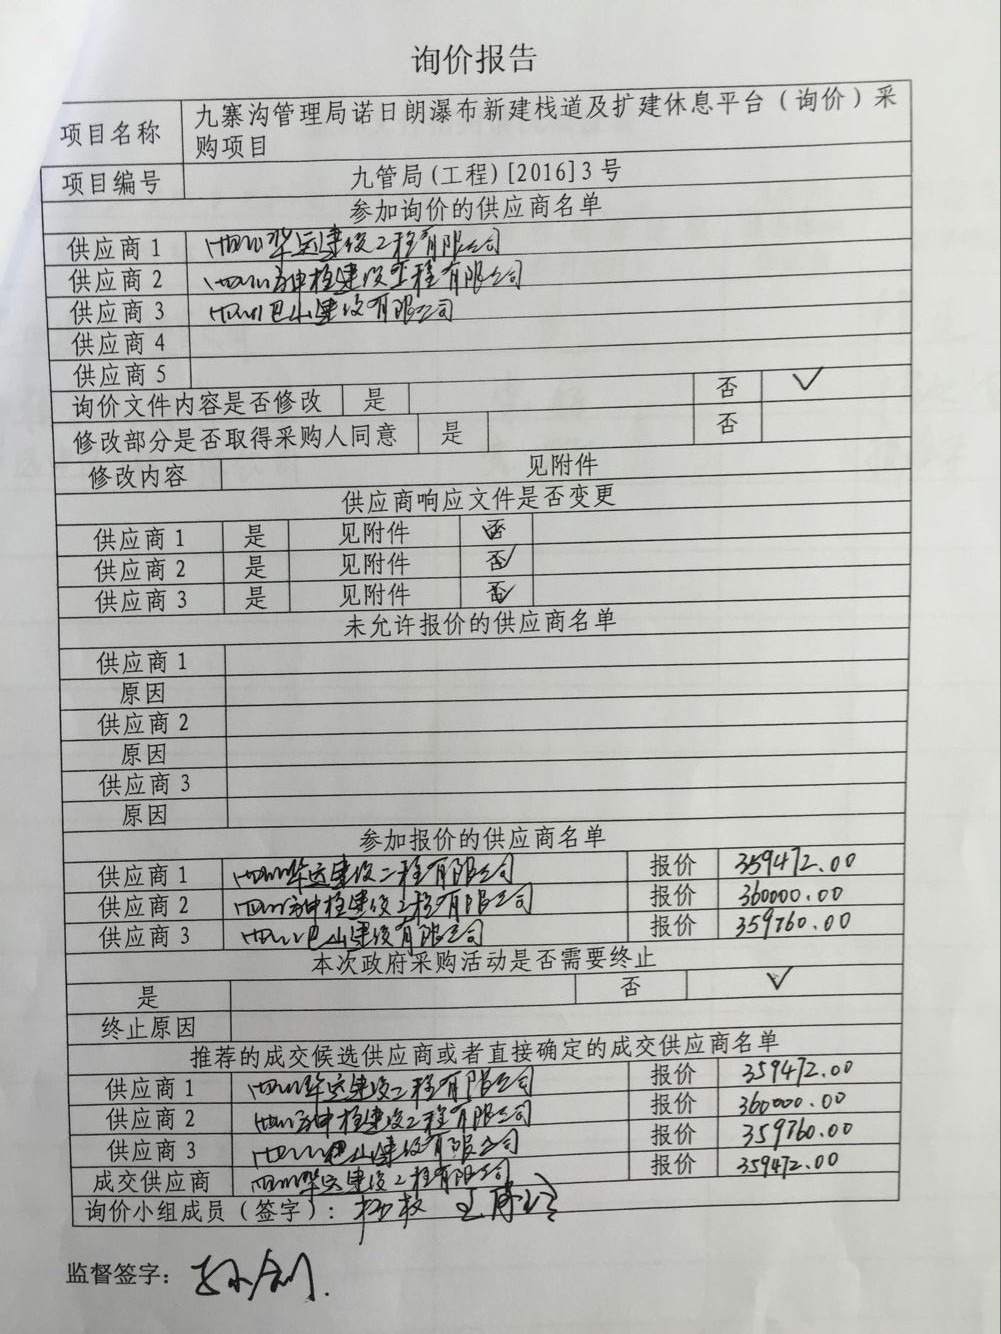 询价报告
项目名称 九寨沟管理局诺日朗瀑布新建栈道及扩建休息平台（询价）采
购项目
项目编号 九管局(工程)[2016]3号
参加询价的供应商名单
供应商1 四川华远建设工程有限公司
供应商2 四川 中 建设工程有限公司
供应商3 四川巴山建设有限公司
供应商4
供应商5
询价文件内容是否修改 是 否 ✓
修改部分是否取得采购人同意 是 否
修改内容 见附件
供应商响应文件是否变更
供应商1 是 见附件 否✓
供应商2 是 见附件 否✓
供应商3 是 见附件 否✓
未允许报价的供应商名单
供应商1
原因
供应商2
原因
供应商3
原因
参加报价的供应商名单
供应商1 四川华远建设工程有限公司 报价 359472.00
供应商2 四川 中 建设工程有限公司 报价 360000.00
供应商3 四川巴山建设有限公司 报价 359760.00
本次政府采购活动是否需要终止
是 否 ✓
终止原因
推荐的成交候选供应商或者直接确定的成交供应商名单
供应商1 四川华远建设工程有限公司 报价 359472.00
供应商2 四川 中 建设工程有限公司 报价 360000.00
供应商3 四川巴山建设有限公司 报价 359760.00
成交供应商 四川华远建设工程有限公司 报价 359472.00
询价小组成员（签字）：
监督签字：